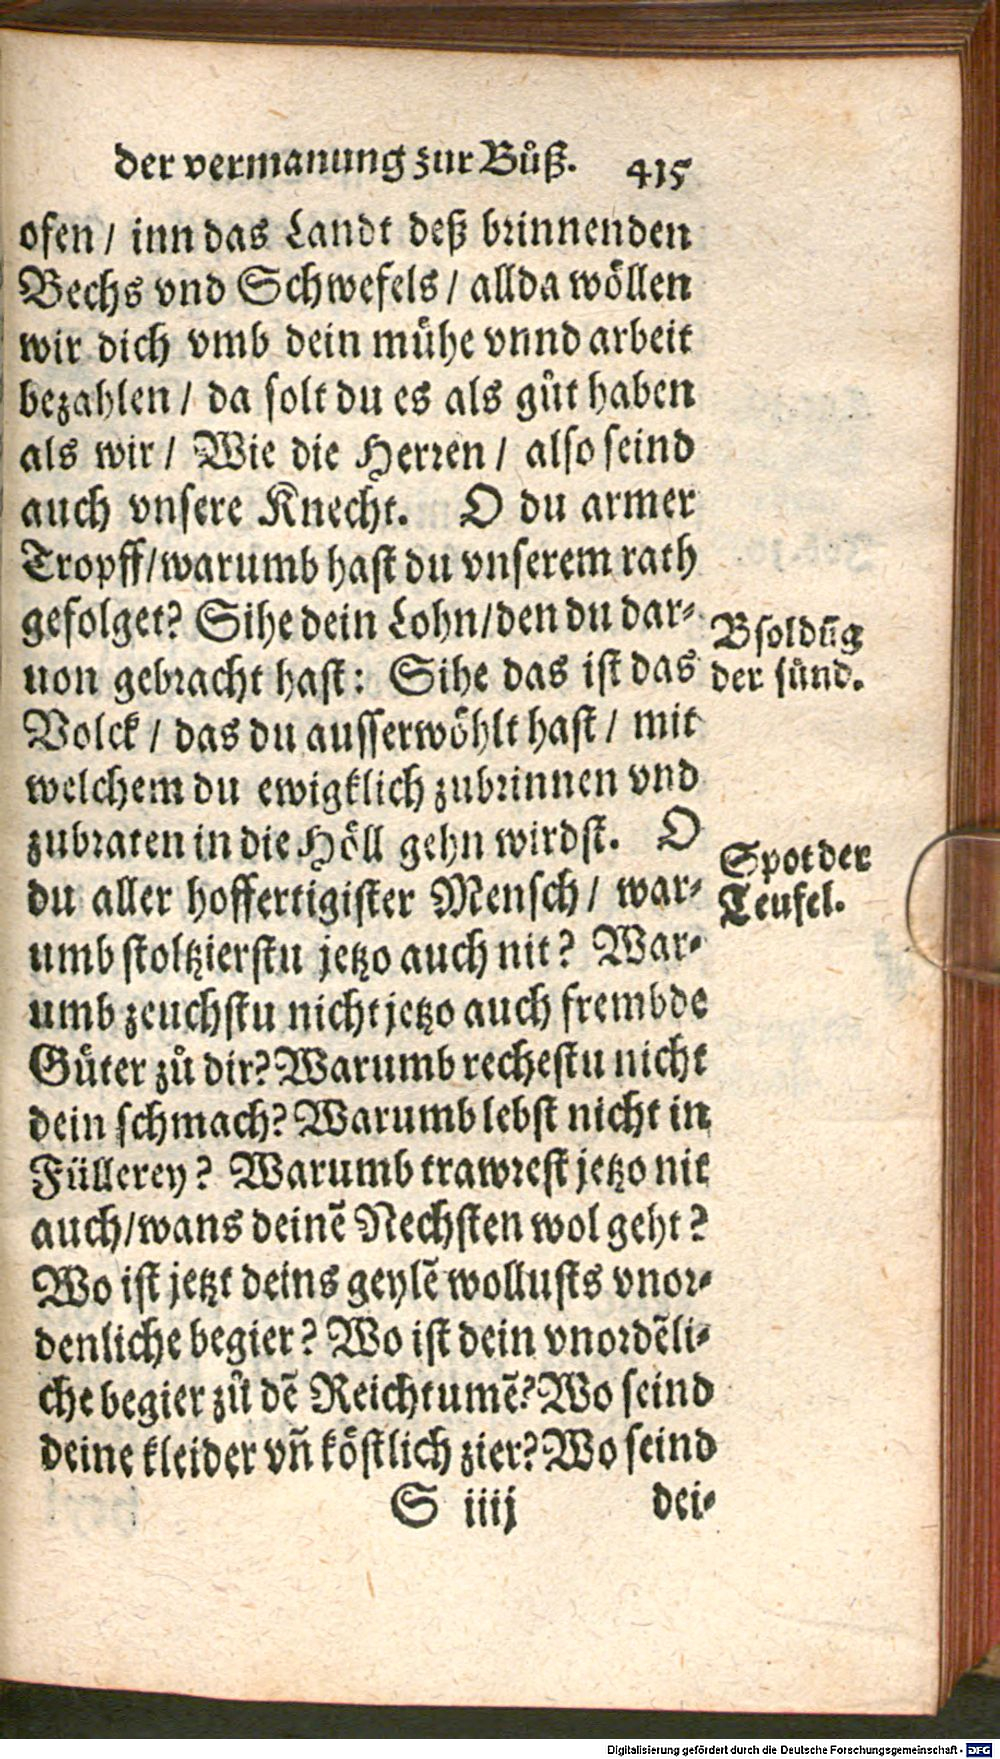 der vermanung zur Bůß. 415
ofen / inn das Landt deß brinnenden
Bechs vnd Schwefels / allda wöllen
wir dich vmb dein mühe vnnd arbeit
bezahlen / da solt du es als gůt haben
als wir / Wie die Herren / also seind
auch vnsere Knecht. O du armer
Tropff/warumb hast du vnserem rath
gefolget? Sihe dein Lohn/den du dar-
uon gebracht hast: Sihe das ist das
Volck / das du ausserwöhlt hast / mit
welchem du ewigklich zubrinnen vnd
zubraten in die Höll gehn wirdst. O
du aller hoffertigister Mensch / war-
umb stoltzierstu jetzo auch nit? War-
umb zeuchstu nicht jetzo auch frembde
Güter zů dir? Warumb rechestu nicht
dein schmach? Warumb lebst nicht in
Füllerey? Warumb trawrest jetzo nit
auch/wans deinẽ Nechsten wol geht?
Wo ist jetzt deins geylẽ wollusts vnor-
denliche begier? Wo ist dein vnordẽli-
che begier zů dẽ Reichtumẽ? Wo seind
deine kleider vñ köstlich zier? Wo seind
S iiij dei-
Bsoldũg
der sünd.
Spot der
Teufel.
Digitalisierung gefördert durch die Deutsche Forschungsgemeinschaft - DFG